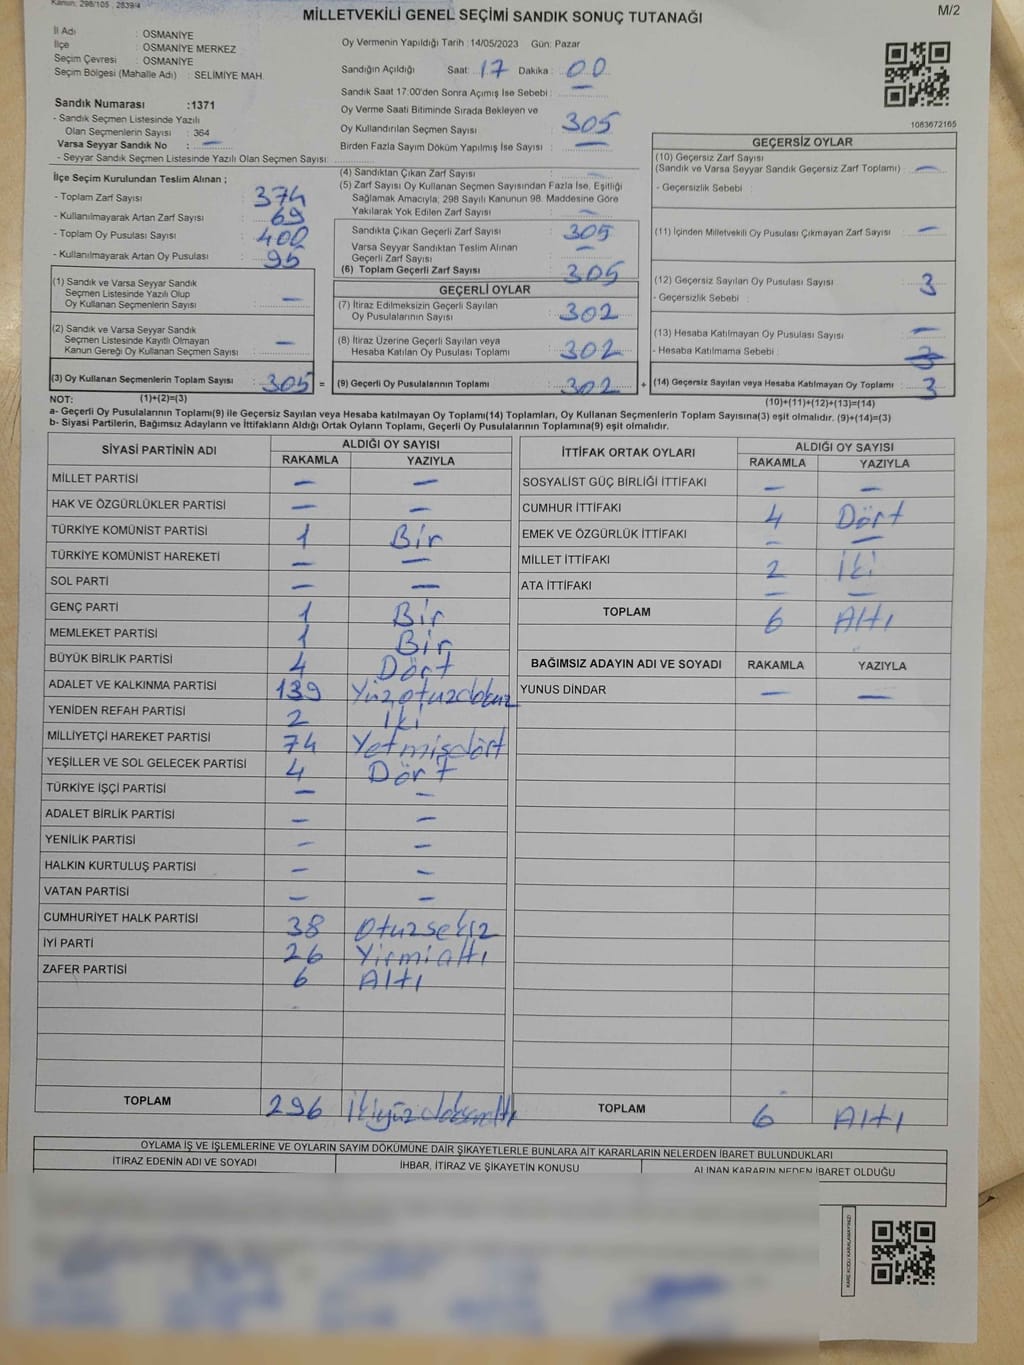 Kanun: 298/105 , 2839/4
MİLLETVEKİLİ GENEL SEÇİMİ SANDIK SONUÇ TUTANAĞI
M/2
İl Adı : OSMANİYE
İlçe : OSMANİYE MERKEZ
Seçim Çevresi : OSMANİYE
Seçim Bölgesi (Mahalle Adı) : SELİMİYE MAH.
Sandık Numarası :1371
- Sandık Seçmen Listesinde Yazılı
Olan Seçmenlerin Sayısı : 364
Varsa Seyyar Sandık No : —
- Seyyar Sandık Seçmen Listesinde Yazılı Olan Seçmen Sayısı:
Oy Vermenin Yapıldığı Tarih :14/05/2023 Gün: Pazar
Sandığın Açıldığı Saat: 17 Dakika : 00
Sandık Saat 17.00'den Sonra Açımış İse Sebebi : —
Oy Verme Saati Bitiminde Sırada Bekleyen ve
Oy Kullandırılan Seçmen Sayısı : 305
Birden Fazla Sayım Döküm Yapılmış İse Sayısı : —
1063672165
İlçe Seçim Kurulundan Teslim Alınan ;
- Toplam Zarf Sayısı : 374
- Kullanılmayarak Artan Zarf Sayısı : 69
- Toplam Oy Pusulası Sayısı : 400
- Kullanılmayarak Artan Oy Pusulası : 95
(1) Sandık ve Varsa Seyyar Sandık
Seçmen Listesinde Yazılı Olup
Oy Kullanan Seçmenlerin Sayısı : —
(2) Sandık ve Varsa Seyyar Sandık
Seçmen Listesinde Kayıtlı Olmayan
Kanun Gereği Oy Kullanan Seçmen Sayısı : —
(3) Oy Kullanan Seçmenlerin Toplam Sayısı : 305 =
(4) Sandıktan Çıkan Zarf Sayısı : —
(5) Zarf Sayısı Oy Kullanan Seçmen Sayısından Fazla İse, Eşitliği
Sağlamak Amacıyla, 298 Sayılı Kanunun 98. Maddesine Göre
Yakılarak Yok Edilen Zarf Sayısı : —
Sandıkta Çıkan Geçerli Zarf Sayısı : 305
Varsa Seyyar Sandıktan Teslim Alınan
Geçerli Zarf Sayısı : —
(6) Toplam Geçerli Zarf Sayısı : 305
GEÇERLİ OYLAR
(7) İtiraz Edilmeksizin Geçerli Sayılan
Oy Pusulalarının Sayısı : 302
(8) İtiraz Üzerine Geçerli Sayılan veya
Hesaba Katılan Oy Pusulası Toplamı : 302
(9) Geçerli Oy Pusulalarının Toplamı : 302 +
GEÇERSİZ OYLAR
(10) Geçersiz Zarf Sayısı
(Sandık ve Varsa Seyyar Sandık Geçersiz Zarf Toplamı) : —
- Geçersizlik Sebebi :
(11) İçinden Milletvekili Oy Pusulası Çıkmayan Zarf Sayısı : —
(12) Geçersiz Sayılan Oy Pusulası Sayısı : 3
- Geçersizlik Sebebi :
(13) Hesaba Katılmayan Oy Pusulası Sayısı : —
- Hesaba Katılmama Sebebi : 3
(14) Geçersiz Sayılan veya Hesaba Katılmayan Oy Toplamı : 3
NOT: (1)+(2)=(3) (10)+(11)+(12)+(13)=(14)
a- Geçerli Oy Pusulalarının Toplamı(9) ile Geçersiz Sayılan veya Hesaba katılmayan Oy Toplamı(14) Toplamları, Oy Kullanan Seçmenlerin Toplam Sayısına(3) eşit olmalıdır. (9)+(14)=(3)
b- Siyasi Partilerin, Bağımsız Adayların ve İttifakların Aldığı Ortak Oyların Toplamı, Geçerli Oy Pusulalarının Toplamına(9) eşit olmalıdır.
SİYASİ PARTİNİN ADI ALDIĞI OY SAYISI
RAKAMLA YAZIYLA
MİLLET PARTİSİ — —
HAK VE ÖZGÜRLÜKLER PARTİSİ — —
TÜRKİYE KOMÜNİST PARTİSİ 1 Bir
TÜRKİYE KOMÜNİST HAREKETİ — —
SOL PARTİ — —
GENÇ PARTİ 1 Bir
MEMLEKET PARTİSİ 1 Bir
BÜYÜK BİRLİK PARTİSİ 4 Dört
ADALET VE KALKINMA PARTİSİ 139 Yüzotuzdokuz
YENİDEN REFAH PARTİSİ 2 İki
MİLLİYETÇİ HAREKET PARTİSİ 74 Yetmişdört
YEŞİLLER VE SOL GELECEK PARTİSİ 4 Dört
TÜRKİYE İŞÇİ PARTİSİ — —
ADALET BİRLİK PARTİSİ — —
YENİLİK PARTİSİ — —
HALKIN KURTULUŞ PARTİSİ — —
VATAN PARTİSİ — —
CUMHURİYET HALK PARTİSİ 38 Otuzsekiz
İYİ PARTİ 26 Yirmialtı
ZAFER PARTİSİ 6 Altı
TOPLAM 296 İkiyüzdoksanaltı
İTTİFAK ORTAK OYLARI ALDIĞI OY SAYISI
RAKAMLA YAZIYLA
SOSYALİST GÜÇ BİRLİĞİ İTTİFAKI — —
CUMHUR İTTİFAKI 4 Dört
EMEK VE ÖZGÜRLÜK İTTİFAKI — —
MİLLET İTTİFAKI 2 İki
ATA İTTİFAKI — —
TOPLAM 6 Altı
BAĞIMSIZ ADAYIN ADI VE SOYADI RAKAMLA YAZIYLA
YUNUS DİNDAR — —
TOPLAM 6 Altı
OYLAMA İŞ VE İŞLEMLERİNE VE OYLARIN SAYIM DÖKÜMÜNE DAİR ŞİKAYETLERLE BUNLARA AİT KARARLARIN NELERDEN İBARET BULUNDUKLARI
İTİRAZ EDENİN ADI VE SOYADI İHBAR, İTİRAZ VE ŞİKAYETİN KONUSU ALINAN KARARIN NEDEN İBARET OLDUĞU
KARE KODU KARALAMAYINIZ!